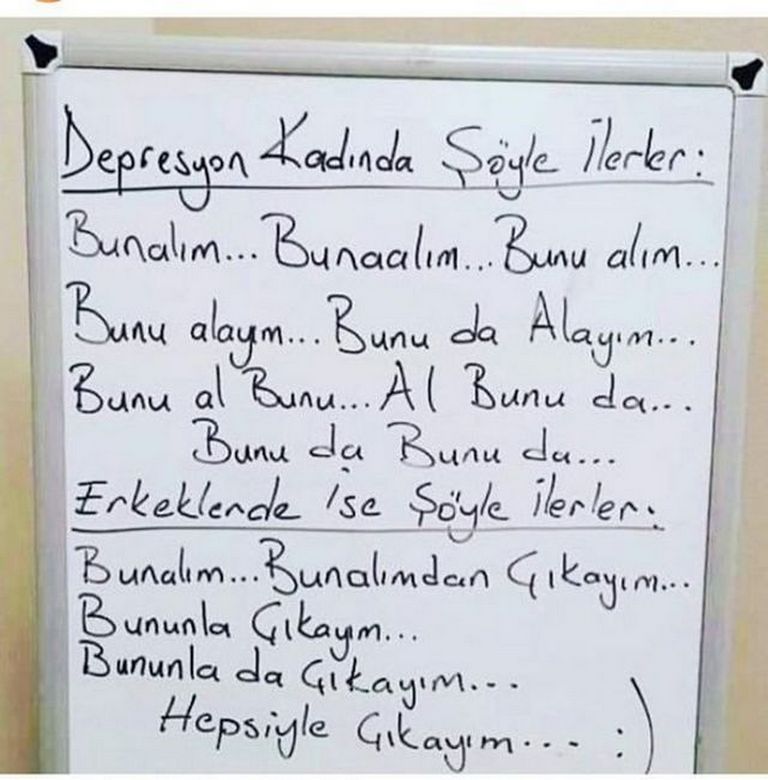 Depresyon Kadında Şöyle İlerler:
Bunalım... Bunaalım... Bunu alım...
Bunu alayım... Bunu da Alayım...
Bunu al Bunu... Al Bunu da...
Bunu da Bunu da...
Erkeklerde İse Şöyle ilerler:
Bunalım... Bunalımdan Çıkayım...
Bununla Çıkayım...
Bununla da Çıkayım...
Hepsiyle Çıkayım.... :)